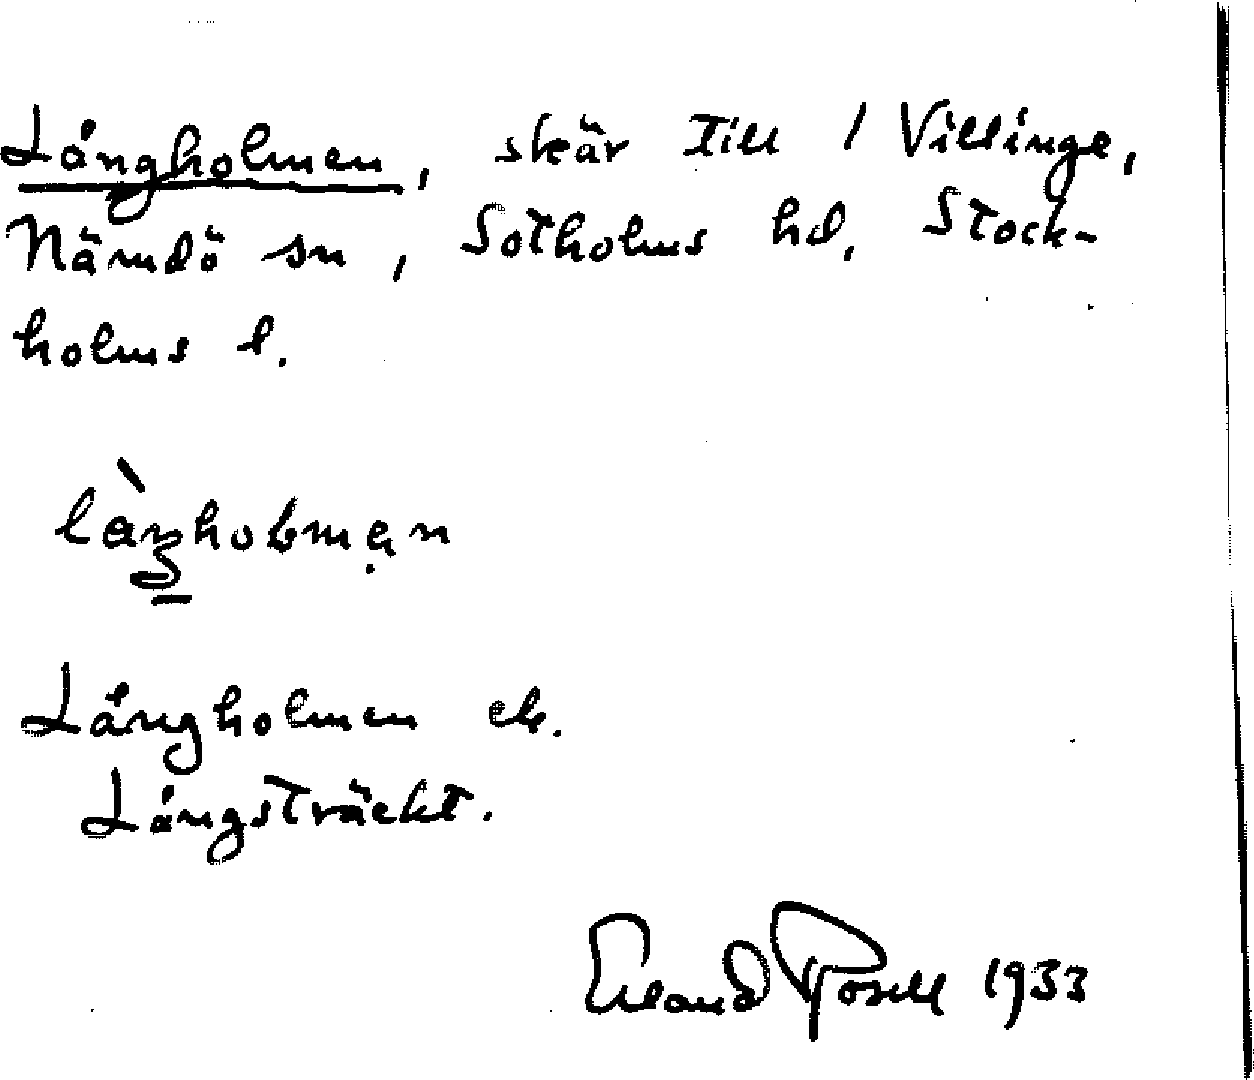 Långholmen, skär till / Villinge,
Nämdö sn, Sotholms hd, Stock-
holms l.
Långholmen ek.
Långsträckt.
Erland Rosell 1933